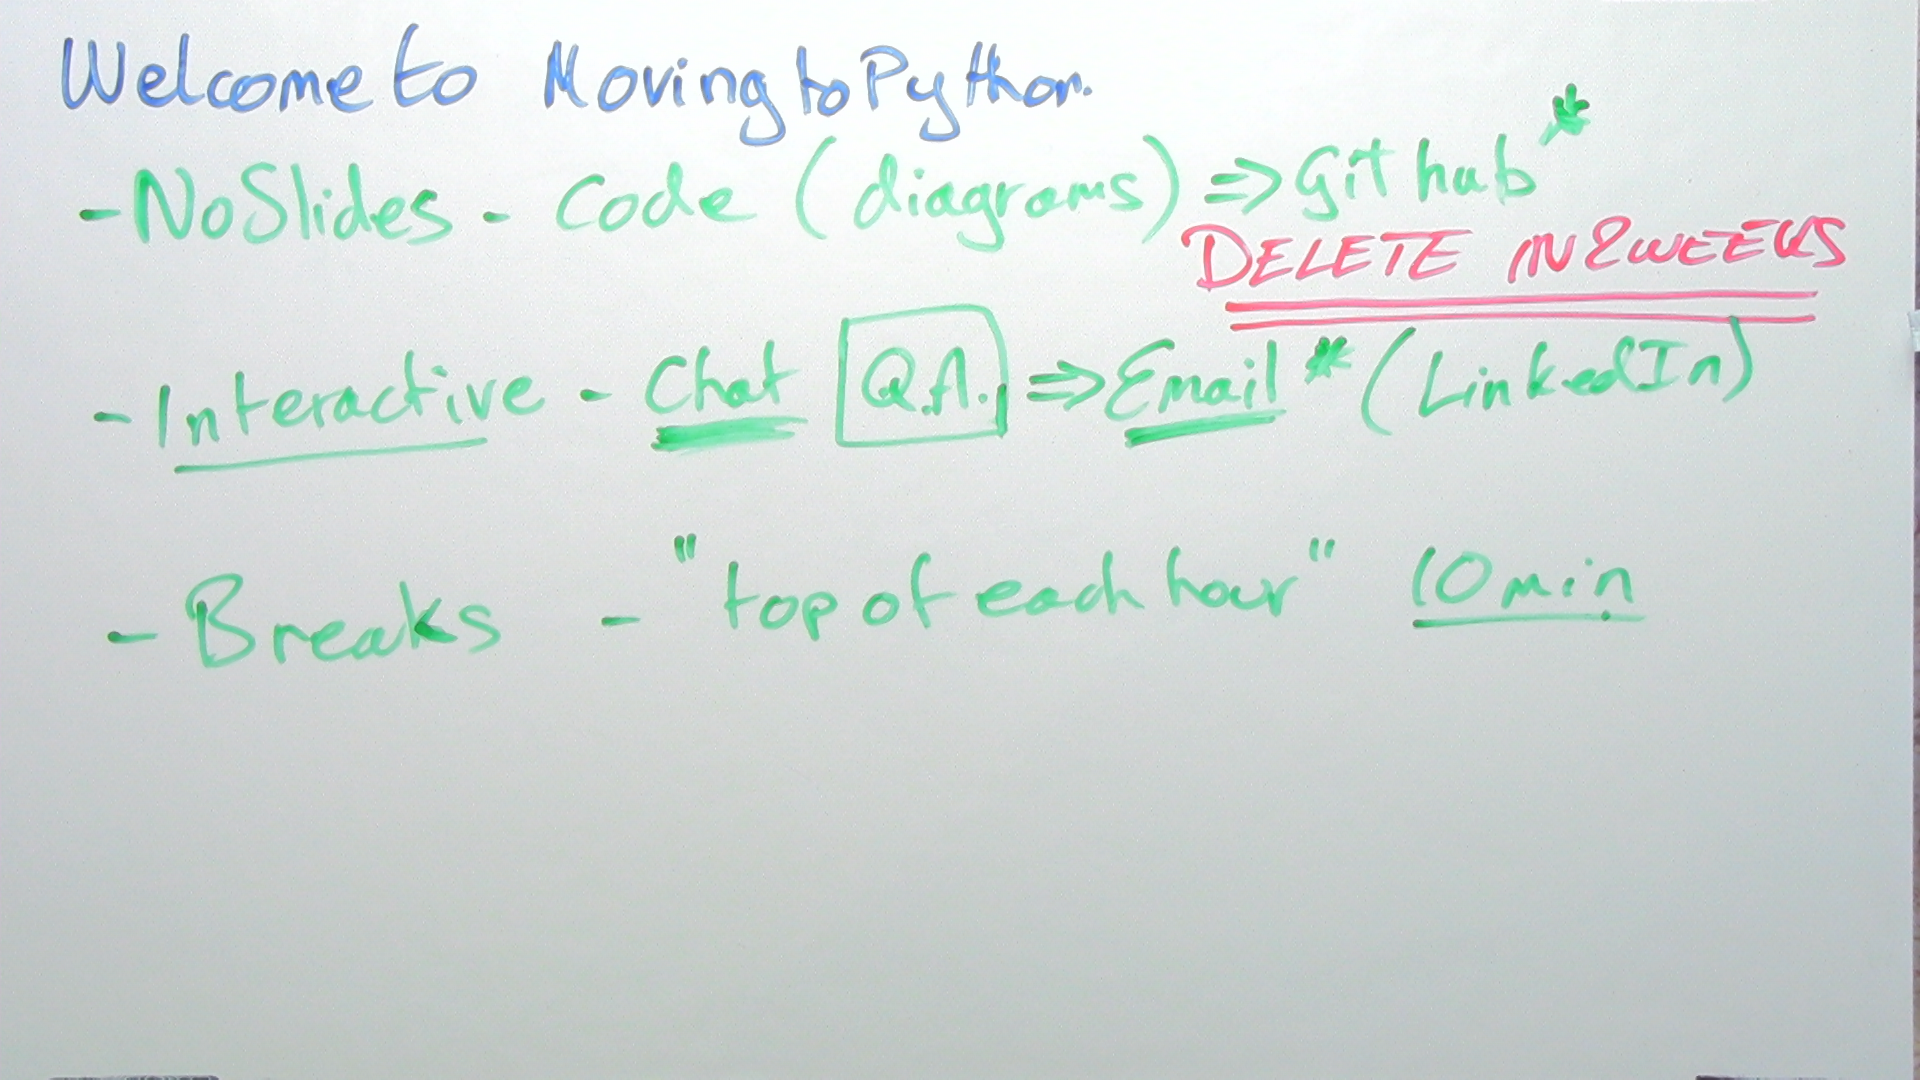 Welcome to Moving to Python.
- No Slides - Code (diagrams) => Github *
DELETE IN 2 WEEKS
- Interactive - Chat Q.A. => Email * (LinkedIn)
- Breaks - "top of each hour" 10 min